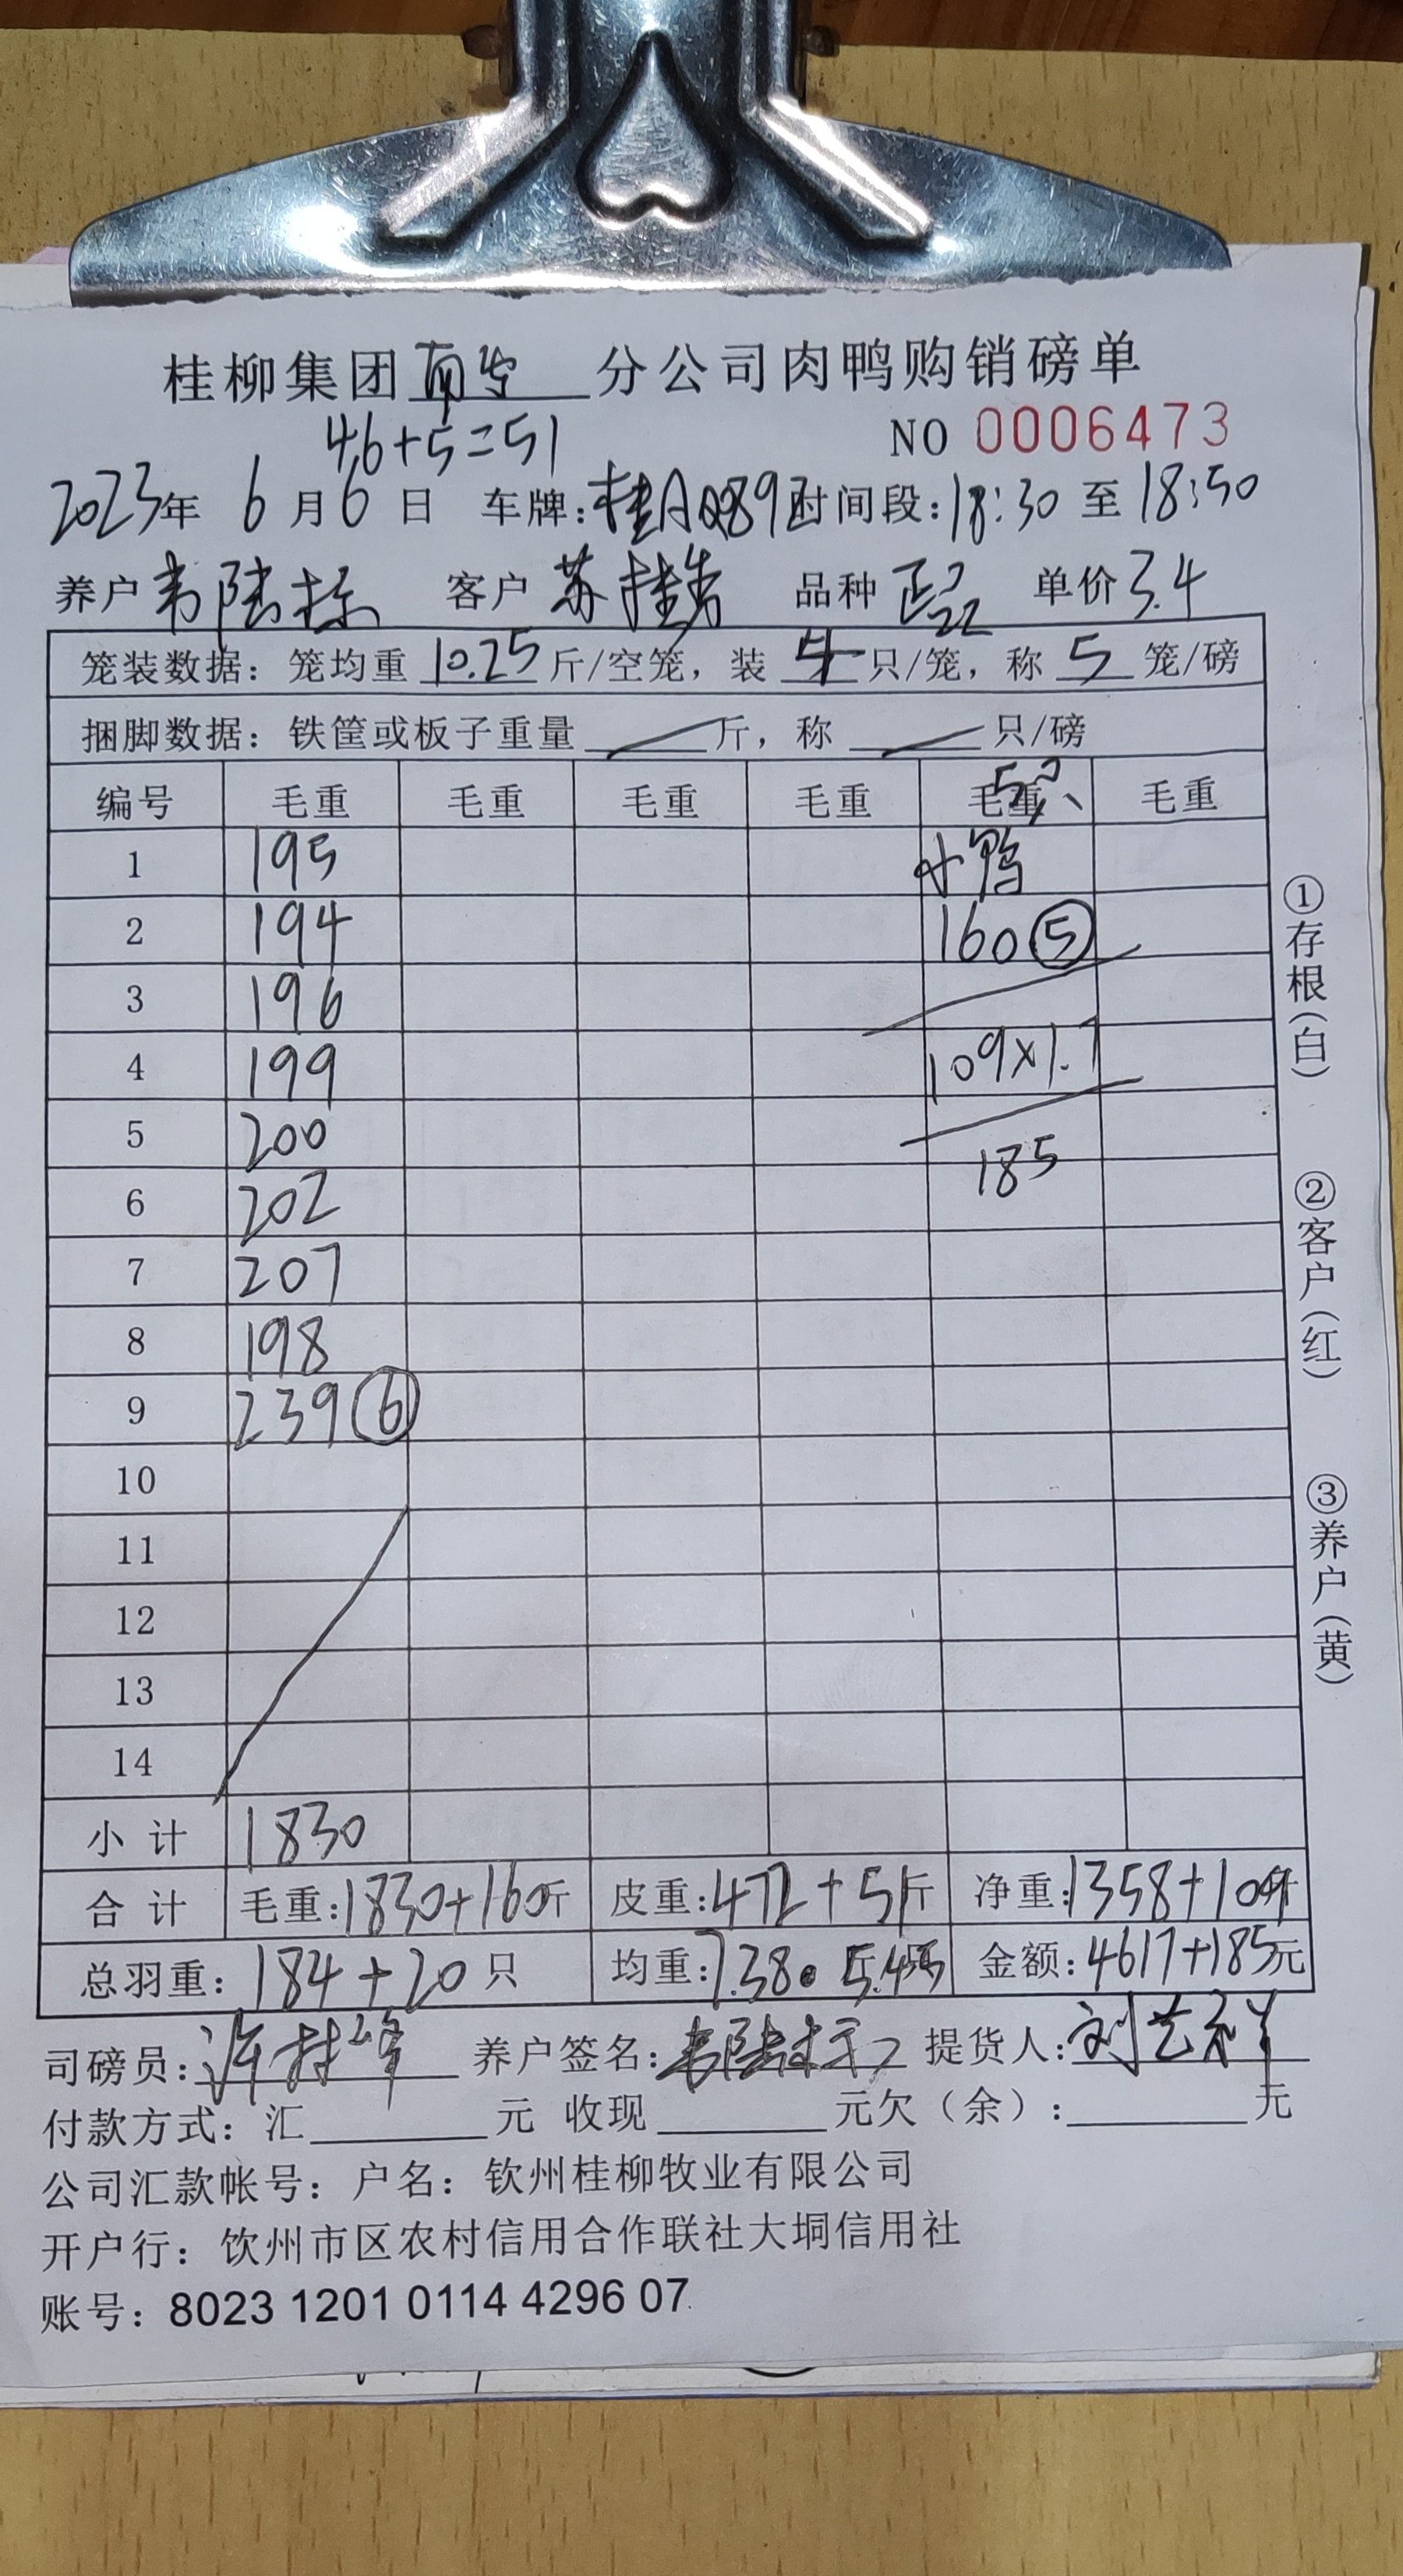 桂柳集团 南宁 分公司肉鸭购销磅单
46+5=51
NO 0006473
2023年 6月6日 车牌:桂A 时间段:18:30 至 18:50
养户 韦陆 客户 苏桂 品种 单价 3.4
笼装数据: 笼均重 10.25 斤/空笼, 装 4 只/笼, 称 5 笼/磅
捆脚数据: 铁筐或板子重量 斤, 称 只/磅
编号 毛重 毛重 毛重 毛重 毛重 毛重
1 195 小鸭
2 194 160⑤
3 196
4 199 109×1.7
5 200
6 202 185
7 207
8 198
9 239⑥
10
11
12
13
14
小 计 1830
合 计 毛重:1830+160斤 皮重:472+51斤 净重:1358+109斤
总羽重: 184+20 只 均重:7.38 5.45 金额:4617+185元
司磅员: 养户签名: 韦陆 提货人: 刘艺祥
付款方式: 汇 元 收现 元欠（余）: 元
公司汇款帐号: 户名: 钦州桂柳牧业有限公司
开户行: 钦州市区农村信用合作联社大垌信用社
账号: 8023 1201 0114 4296 07
①存根(白)
②客户(红)
③养户(黄)